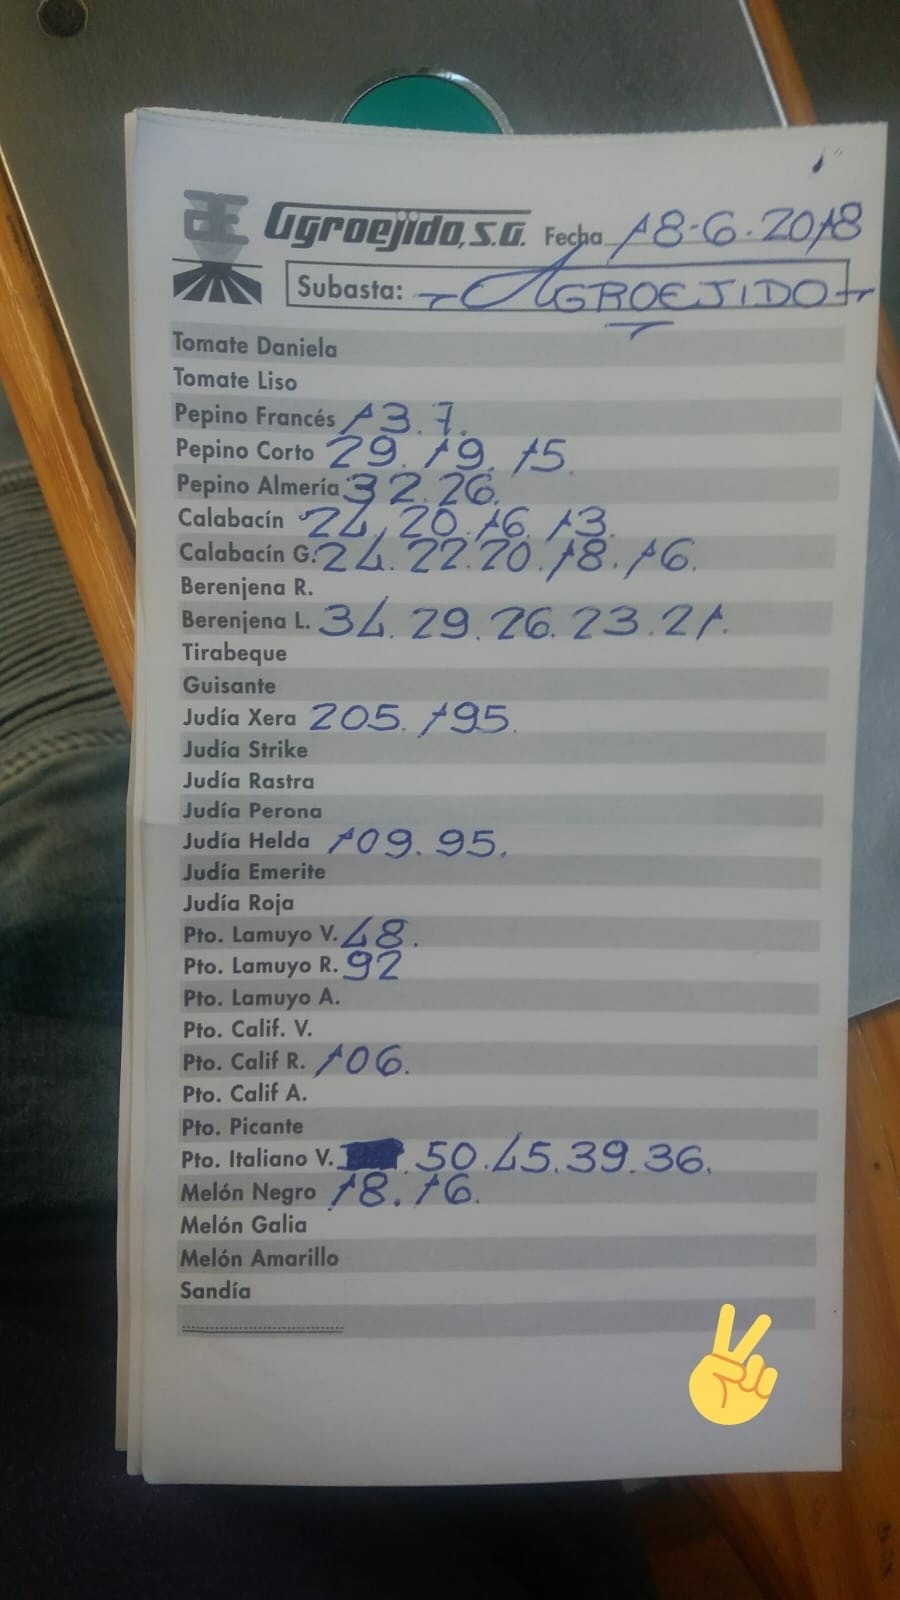 Agroejido, S.A. Fecha 18-6-2018
Subasta: AGROEJIDO
Tomate Daniela
Tomate Liso
Pepino Francés 13.7.
Pepino Corto 29.19.15.
Pepino Almería 32.26.
Calabacín 24.20.16.13.
Calabacín G. 24.22.20.18.16.
Berenjena R.
Berenjena L. 34.29.26.23.21.
Tirabeque
Guisante
Judía Xera 205.195.
Judía Strike
Judía Rastra
Judía Perona
Judía Helda 109.95.
Judía Emerite
Judía Roja
Pto. Lamuyo V. 48.
Pto. Lamuyo R. 92
Pto. Lamuyo A.
Pto. Calif. V.
Pto. Calif R. 106.
Pto. Calif A.
Pto. Picante
Pto. Italiano V. .50.45.39.36.
Melón Negro 18.16.
Melón Galia
Melón Amarillo
Sandía